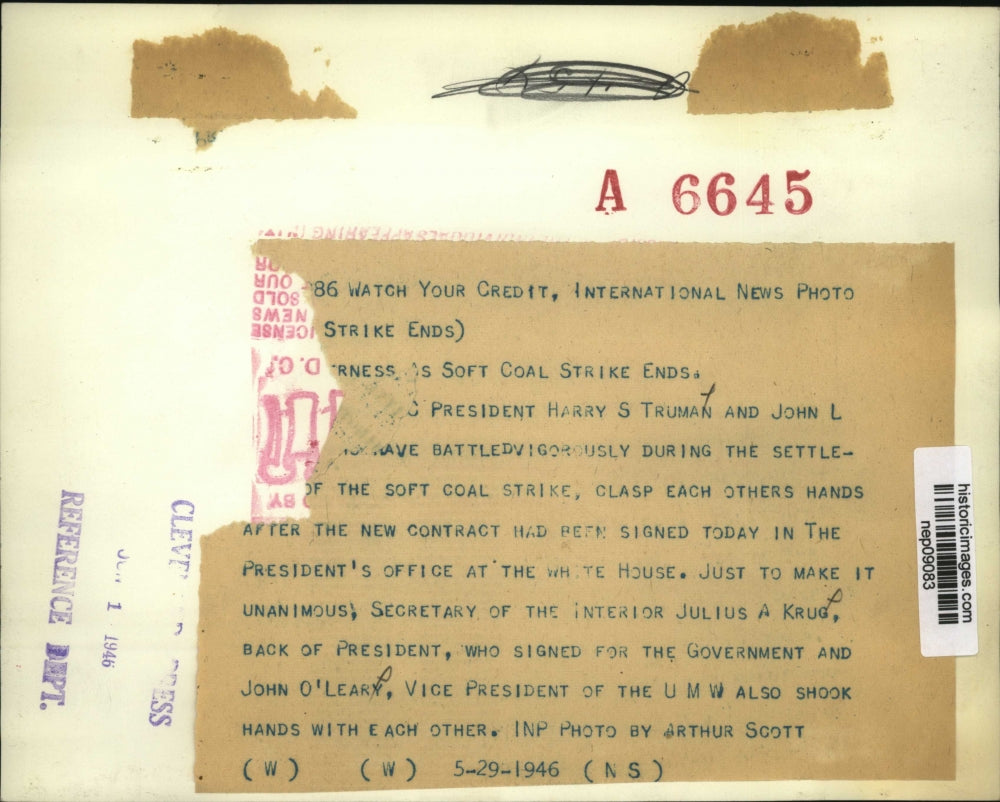 A 6645
86 WATCH YOUR CREDIT, INTERNATIONAL NEWS PHOTO
STRIKE ENDS)
RNESS AS SOFT COAL STRIKE ENDS.
C PRESIDENT HARRY S TRUMAN AND JOHN L
HAVE BATTLEDVIGOROUSLY DURING THE SETTLE-
OF THE SOFT COAL STRIKE, CLASP EACH OTHERS HANDS
AFTER THE NEW CONTRACT HAD BEEN SIGNED TODAY IN THE
PRESIDENT'S OFFICE AT THE WHITE HOUSE. JUST TO MAKE IT
UNANIMOUS, SECRETARY OF THE INTERIOR JULIUS A KRUG,
BACK OF PRESIDENT, WHO SIGNED FOR THE GOVERNMENT AND
JOHN O'LEARY, VICE PRESIDENT OF THE U M W ALSO SHOOK
HANDS WITH EACH OTHER. INP PHOTO BY ARTHUR SCOTT
(W) (W) 5-29-1946 (NS)
OUR
SOLD
NEWS
D.C.
BY
REFERENCE DEPT.
JUN 1 1946
historicimages.com
nep09083